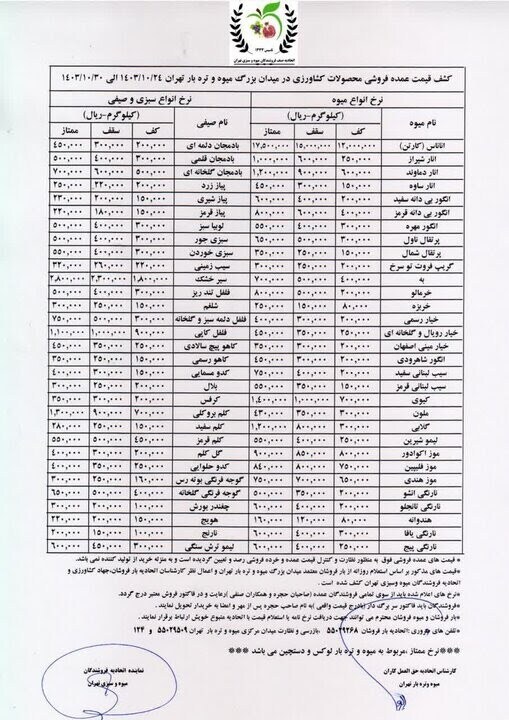 تاسیس ۱۳۳۲
اتحادیه صنف فروشندگان میوه و سبزی تهران
کشف قیمت عمده فروشی محصولات کشاورزی در میدان بزرگ میوه و تره بار تهران ۱۴۰۳/۱۰/۲۴ الی ۱۴۰۳/۱۰/۳۰
نرخ انواع میوه نرخ انواع سبزی و صیفی
نام میوه (کیلوگرم-ریال) نام صیفی (کیلوگرم-ریال)
کف سقف ممتاز کف سقف ممتاز
آناناس (کارتن) ۱۲,۰۰۰,۰۰۰ ۱۵,۰۰۰,۰۰۰ ۱۷,۵۰۰,۰۰۰ بادمجان دلمه ای ۲۰۰,۰۰۰ ۳۰۰,۰۰۰ ۴۵۰,۰۰۰
انار شیراز ۲۵۰,۰۰۰ ۶۰۰,۰۰۰ ۱,۰۰۰,۰۰۰ بادمجان قلمی ۲۰۰,۰۰۰ ۳۰۰,۰۰۰ ۴۰۰,۰۰۰
انار دماوند ۶۰۰,۰۰۰ ۹۰۰,۰۰۰ ۱,۲۰۰,۰۰۰ بادمجان گلخانه ای ۵۰۰,۰۰۰ ۶۰۰,۰۰۰ ۷۰۰,۰۰۰
انار ساوه ۱۵۰,۰۰۰ ۳۰۰,۰۰۰ ۴۵۰,۰۰۰ پیاز زرد ۲۰۰,۰۰۰ ۲۲۰,۰۰۰ ۲۵۰,۰۰۰
انگور بی دانه سفید ۲۰۰,۰۰۰ ۴۰۰,۰۰۰ ۶۰۰,۰۰۰ پیاز شیری ۱۵۰,۰۰۰ ۲۰۰,۰۰۰ ۲۳۰,۰۰۰
انگور بی دانه قرمز ۴۰۰,۰۰۰ ۶۰۰,۰۰۰ ۸۰۰,۰۰۰ پیاز قرمز ۱۵۰,۰۰۰ ۱۸۰,۰۰۰ ۲۲۰,۰۰۰
انگور مهره ۳۰۰,۰۰۰ ۴۰۰,۰۰۰ ۵۵۰,۰۰۰ لوبیا سبز ۳۰۰,۰۰۰ ۴۰۰,۰۰۰ ۵۰۰,۰۰۰
پرتقال ناول ۳۵۰,۰۰۰ ۵۰۰,۰۰۰ ۶۵۰,۰۰۰ سبزی جور ۳۰۰,۰۰۰ ۴۰۰,۰۰۰ ۵۰۰,۰۰۰
پرتقال شمال ۱۵۰,۰۰۰ ۲۵۰,۰۰۰ ۳۵۰,۰۰۰ سبزی خوردن ۳۰۰,۰۰۰ ۴۰۰,۰۰۰ ۵۵۰,۰۰۰
گریپ فروت تو سرخ ۲۰۰,۰۰۰ ۲۵۰,۰۰۰ ۳۰۰,۰۰۰ سیب زمینی ۲۲۰,۰۰۰ ۲۶۰,۰۰۰ ۳۲۰,۰۰۰
به ۴۰۰,۰۰۰ ۵۰۰,۰۰۰ ۷۰۰,۰۰۰ سیر خشک ۱,۸۰۰,۰۰۰ ۲,۳۰۰,۰۰۰ ۲,۸۰۰,۰۰۰
خرمالو ۲۰۰,۰۰۰ ۵۰۰,۰۰۰ ۸۰۰,۰۰۰ فلفل تند ریز ۳۰۰,۰۰۰ ۴۰۰,۰۰۰ ۵۰۰,۰۰۰
خربزه ۸۰,۰۰۰ ۱۵۰,۰۰۰ ۲۵۰,۰۰۰ شلغم ۱۵۰,۰۰۰ ۲۵۰,۰۰۰ ۳۰۰,۰۰۰
خیار رسمی ۲۰۰,۰۰۰ ۳۰۰,۰۰۰ ۴۰۰,۰۰۰ فلفل دلمه سبز و گلخانه ۳۵۰,۰۰۰ ۵۰۰,۰۰۰ ۷۵۰,۰۰۰
خیار رویال و گلخانه ای ۲۵۰,۰۰۰ ۳۵۰,۰۰۰ ۴۵۰,۰۰۰ فلفل کاپی ۹۰۰,۰۰۰ ۱,۰۰۰,۰۰۰ ۱,۱۰۰,۰۰۰
خیار مینی اصفهان ۲۰۰,۰۰۰ ۳۰۰,۰۰۰ ۴۰۰,۰۰۰ کاهو پیچ سالادی ۲۵۰,۰۰۰ ۳۵۰,۰۰۰ ۴۵۰,۰۰۰
انگور شاهرودی ۲۰۰,۰۰۰ ۳۰۰,۰۰۰ ۴۰۰,۰۰۰ کاهو رسمی ۱۵۰,۰۰۰ ۲۵۰,۰۰۰ ۳۵۰,۰۰۰
سیب لبنانی سفید ۲۰۰,۰۰۰ ۴۰۰,۰۰۰ ۷۵۰,۰۰۰ کدو مسمایی ۲۰۰,۰۰۰ ۳۰۰,۰۰۰ ۴۰۰,۰۰۰
سیب لبنانی قرمز ۱۵۰,۰۰۰ ۳۵۰,۰۰۰ ۵۵۰,۰۰۰ بلال ۲۰۰,۰۰۰ ۲۵۰,۰۰۰ ۳۰۰,۰۰۰
کیوی ۷۰۰,۰۰۰ ۱,۰۰۰,۰۰۰ ۱,۴۰۰,۰۰۰ کرفس ۲۰۰,۰۰۰ ۳۰۰,۰۰۰ ۳۵۰,۰۰۰
ملون ۲۰۰,۰۰۰ ۳۵۰,۰۰۰ ۴۳۰,۰۰۰ کلم بروکلی ۷۰۰,۰۰۰ ۹۰۰,۰۰۰ ۱,۳۰۰,۰۰۰
گلابی ۳۰۰,۰۰۰ ۸۰۰,۰۰۰ ۱,۲۰۰,۰۰۰ کلم سفید ۱۵۰,۰۰۰ ۲۵۰,۰۰۰ ۲۸۰,۰۰۰
لیمو شیرین ۲۵۰,۰۰۰ ۴۰۰,۰۰۰ ۵۵۰,۰۰۰ کلم قرمز ۴۵۰,۰۰۰ ۵۰۰,۰۰۰ ۵۵۰,۰۰۰
موز اکوادور ۸۰۰,۰۰۰ ۸۵۰,۰۰۰ ۹۰۰,۰۰۰ گل کلم ۲۰۰,۰۰۰ ۳۰۰,۰۰۰ ۴۰۰,۰۰۰
موز فلیپین ۷۵۰,۰۰۰ ۸۰۰,۰۰۰ ۸۴۰,۰۰۰ کدو حلوایی ۲۵۰,۰۰۰ ۳۵۰,۰۰۰ ۴۰۰,۰۰۰
موز هندی ۶۵۰,۰۰۰ ۷۰۰,۰۰۰ ۷۵۰,۰۰۰ گوجه فرنگی بوته رس ۱۶۰,۰۰۰ ۲۵۰,۰۰۰ ۳۰۰,۰۰۰
نارنگی انشو ۲۵۰,۰۰۰ ۴۰۰,۰۰۰ ۵۵۰,۰۰۰ گوجه فرنگی گلخانه ۴۰۰,۰۰۰ ۵۰۰,۰۰۰ ۶۵۰,۰۰۰
نارنگی تانجلو ۲۰۰,۰۰۰ ۳۰۰,۰۰۰ ۴۰۰,۰۰۰ چغندر بورش ۱۰۰,۰۰۰ ۲۰۰,۰۰۰ ۳۰۰,۰۰۰
هندوانه ۸۰,۰۰۰ ۱۲۰,۰۰۰ ۱۶۰,۰۰۰ هویج ۱۵۰,۰۰۰ ۲۰۰,۰۰۰ ۲۲۰,۰۰۰
نارنگی یافا ۲۰۰,۰۰۰ ۳۰۰,۰۰۰ ۴۰۰,۰۰۰ نارنج ۱۰۰,۰۰۰ ۱۵۰,۰۰۰ ۲۰۰,۰۰۰
نارنگی پیج ۲۵۰,۰۰۰ ۴۰۰,۰۰۰ ۶۰۰,۰۰۰ لیمو ترش سنگی ۳۰۰,۰۰۰ ۴۵۰,۰۰۰ ۶۰۰,۰۰۰
* قیمت های عمده فروشی فوق به منظور نظارت و کنترل قیمت عمده و خرده فروشی رصد و تعیین گردیده است و به منزله خرید از تولید کننده نمی باشد.
*قیمت های مذکور بر اساس استعلام روزانه از بار فروشان معتمد میدان بزرگ میوه و تره بار تهران و اعمال نظر کارشناسان اتحادیه بارفروشان،جهاد کشاورزی و
اتحادیه فروشندگان میوه وسبزی تهران کشف شده است .
*نرخ های اعلام شده باید از سوی تمامی فروشندگان عمده (صاحبان حجره و همکاران صنفی )رعایت و در فاکتور فروش معتبر درج گردد.
*فروشندگان باید فاکتور سر برگ دار (بادرج قیمت واقعی )به نام صاحب حجره پس از مهر و امضا به خریدار تحویل نمایند .
*بار فروشان و میوه فروشان محترم می توانند جهت دریافت نرخ نامه یا استعلام قیمت با اتحادیه متبوع خویش ارتباط برقرار نمایند .
*تلفن های :اتحادیه بار فروشان ۵۵۰۲۹۲۶۸ ،بازرسی و نظارت میدان مرکزی میوه و تره بار تهران ۵۵۰۲۹۵۰۹ و ۱۲۴
***نرخ ممتاز ،مربوط به میوه و تره بار لوکس و دستچین می باشد ***
کارشناس اتحادیه حق العمل کاران
میوه وتره بار تهران
نماینده اتحادیه فروشندگان
میوه و سبزی تهران